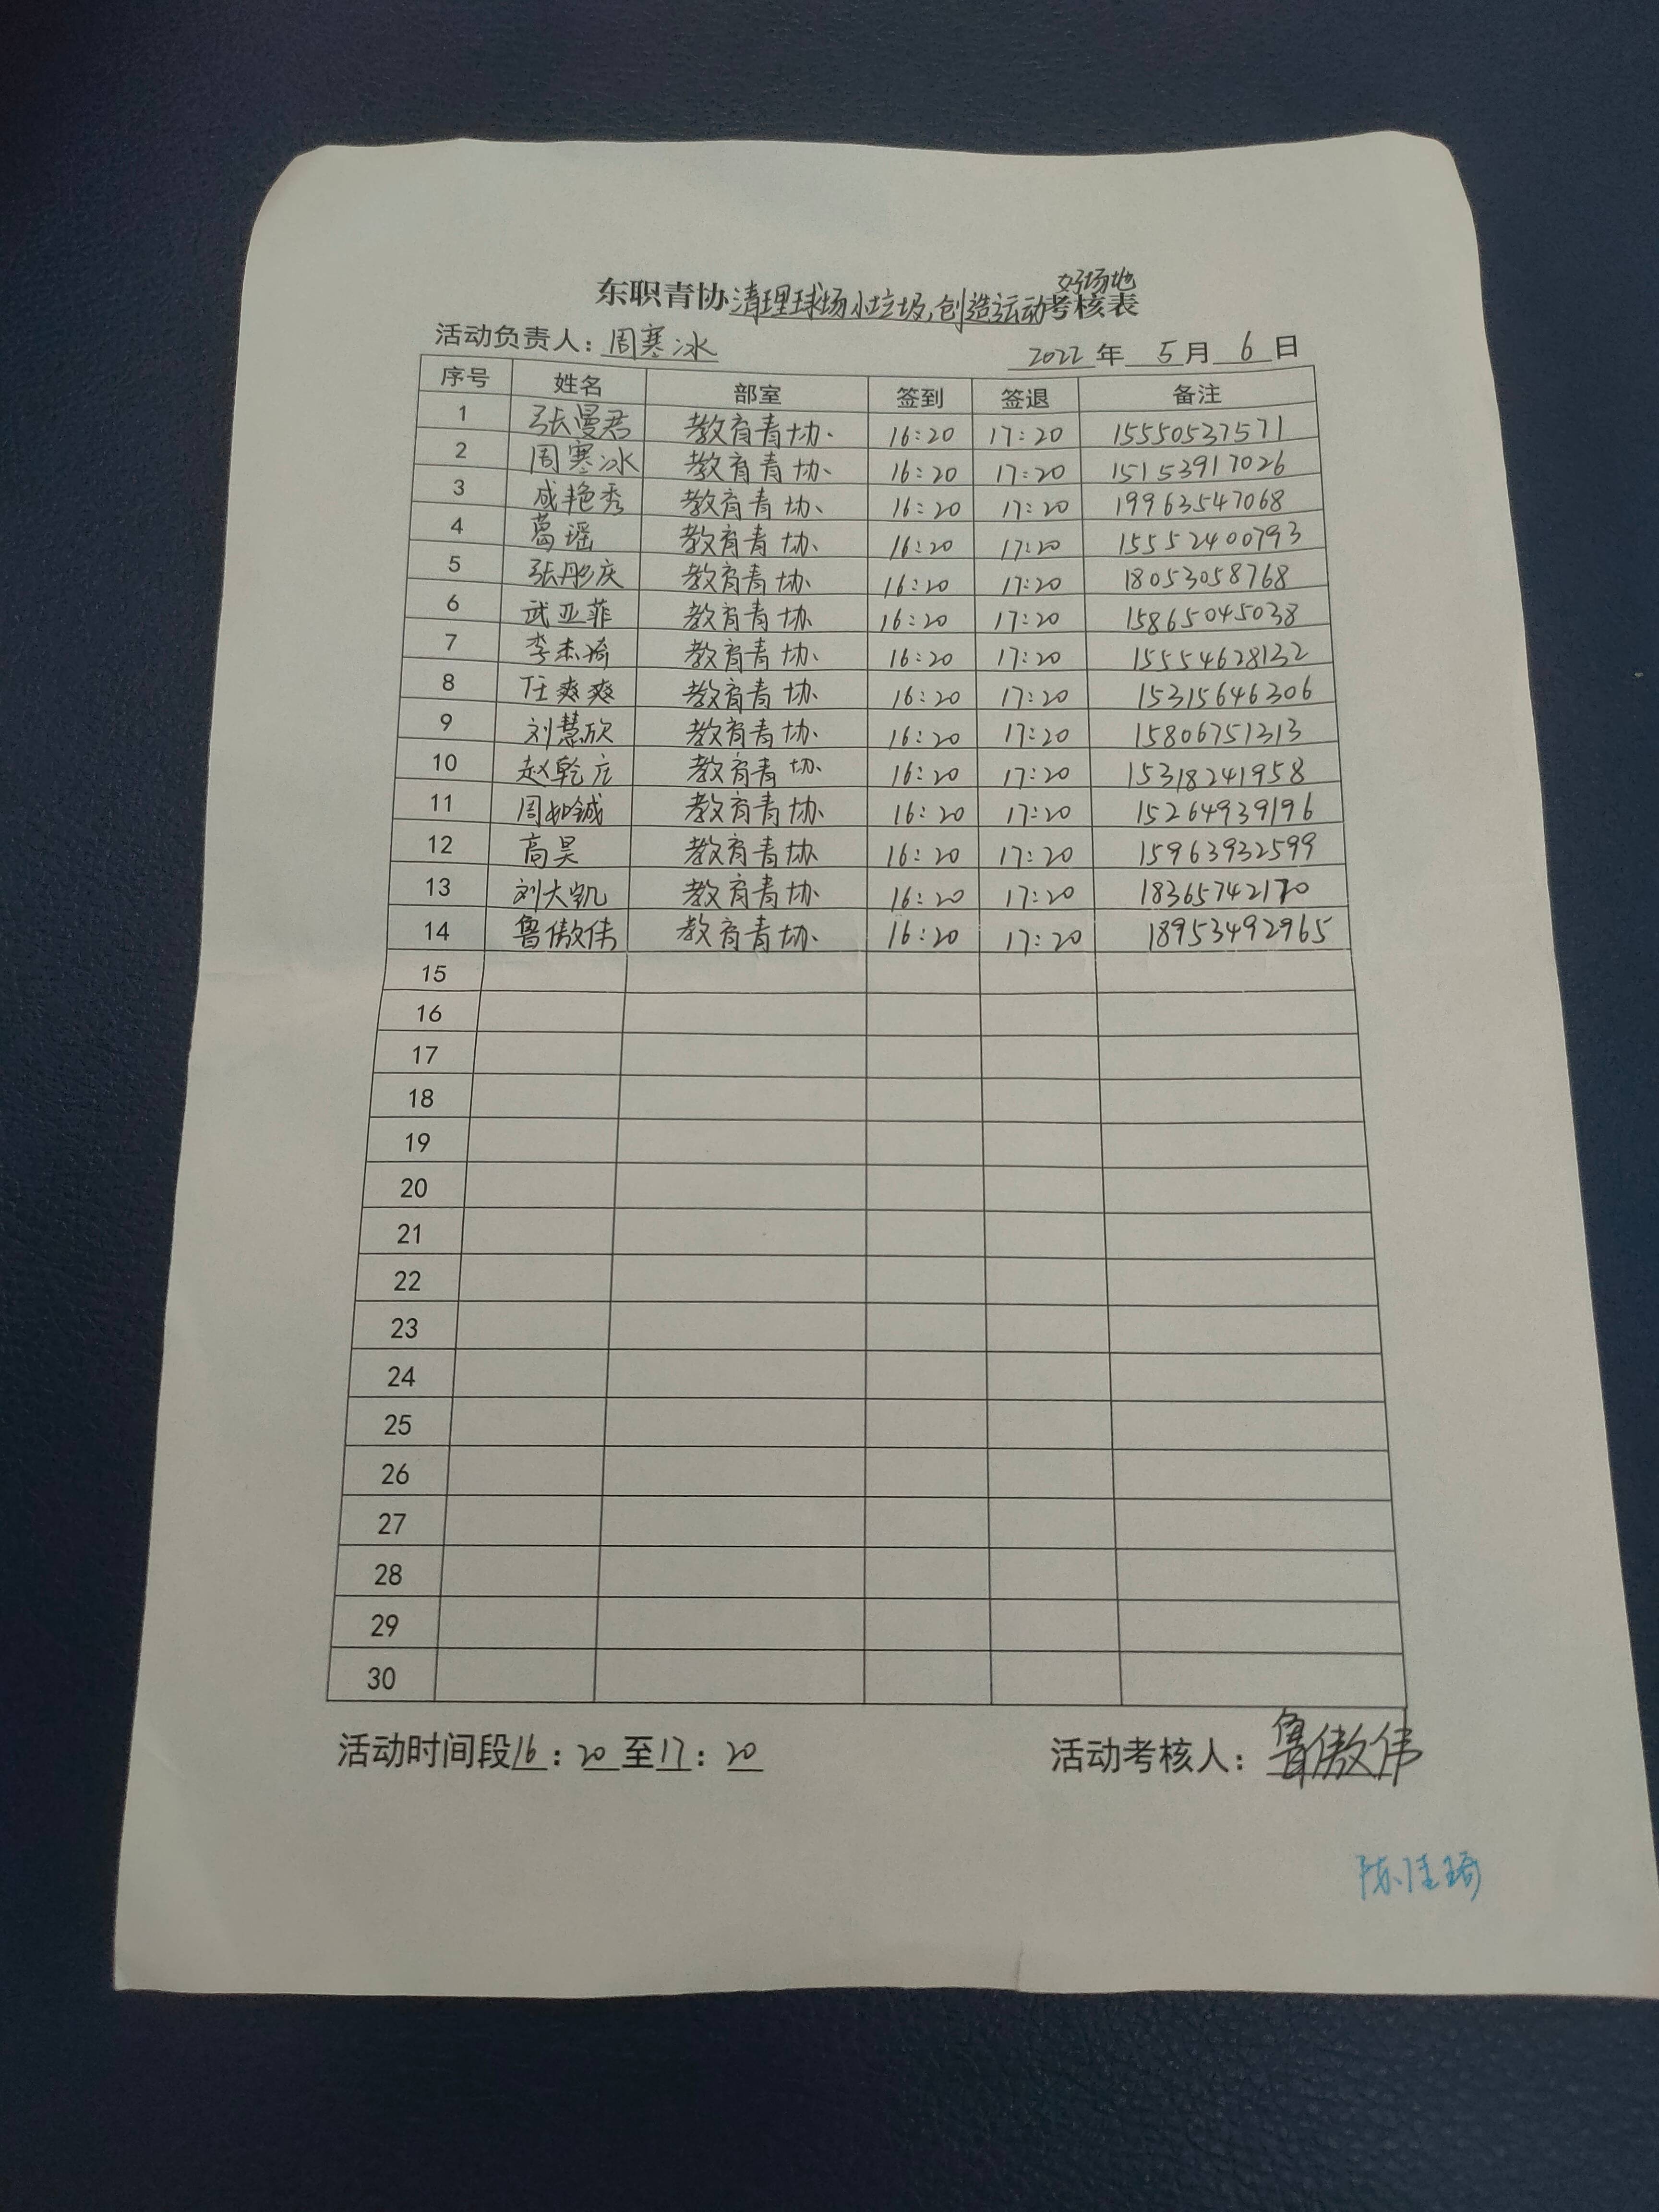 好场地
东职青协清理球场小垃圾,创造运动考核表
活动负责人：周寒冰 2022年5月6日
序号 姓名 部室 签到 签退 备注
1 张曼君 教育青协 16:20 17:20 15550537571
2 周寒冰 教育青协 16:20 17:20 15153917026
3 成艳秀 教育青协 16:20 17:20 19963547068
4 葛瑶 教育青协 16:20 17:20 15552400793
5 张彤庆 教育青协 16:20 17:20 18053058768
6 武亚菲 教育青协 16:20 17:20 15865045038
7 李杰琦 教育青协 16:20 17:20 15554628132
8 任爽爽 教育青协 16:20 17:20 15315646306
9 刘慧欣 教育青协 16:20 17:20 15806751313
10 赵乾庄 教育青协 16:20 17:20 15318241958
11 周如铖 教育青协 16:20 17:20 15264939196
12 高昊 教育青协 16:20 17:20 15963932599
13 刘大凯 教育青协 16:20 17:20 18365742170
14 鲁傲伟 教育青协 16:20 17:20 18953492965
15
16
17
18
19
20
21
22
23
24
25
26
27
28
29
30
活动时间段16：20至17：20 活动考核人：鲁傲伟
陈佳琦